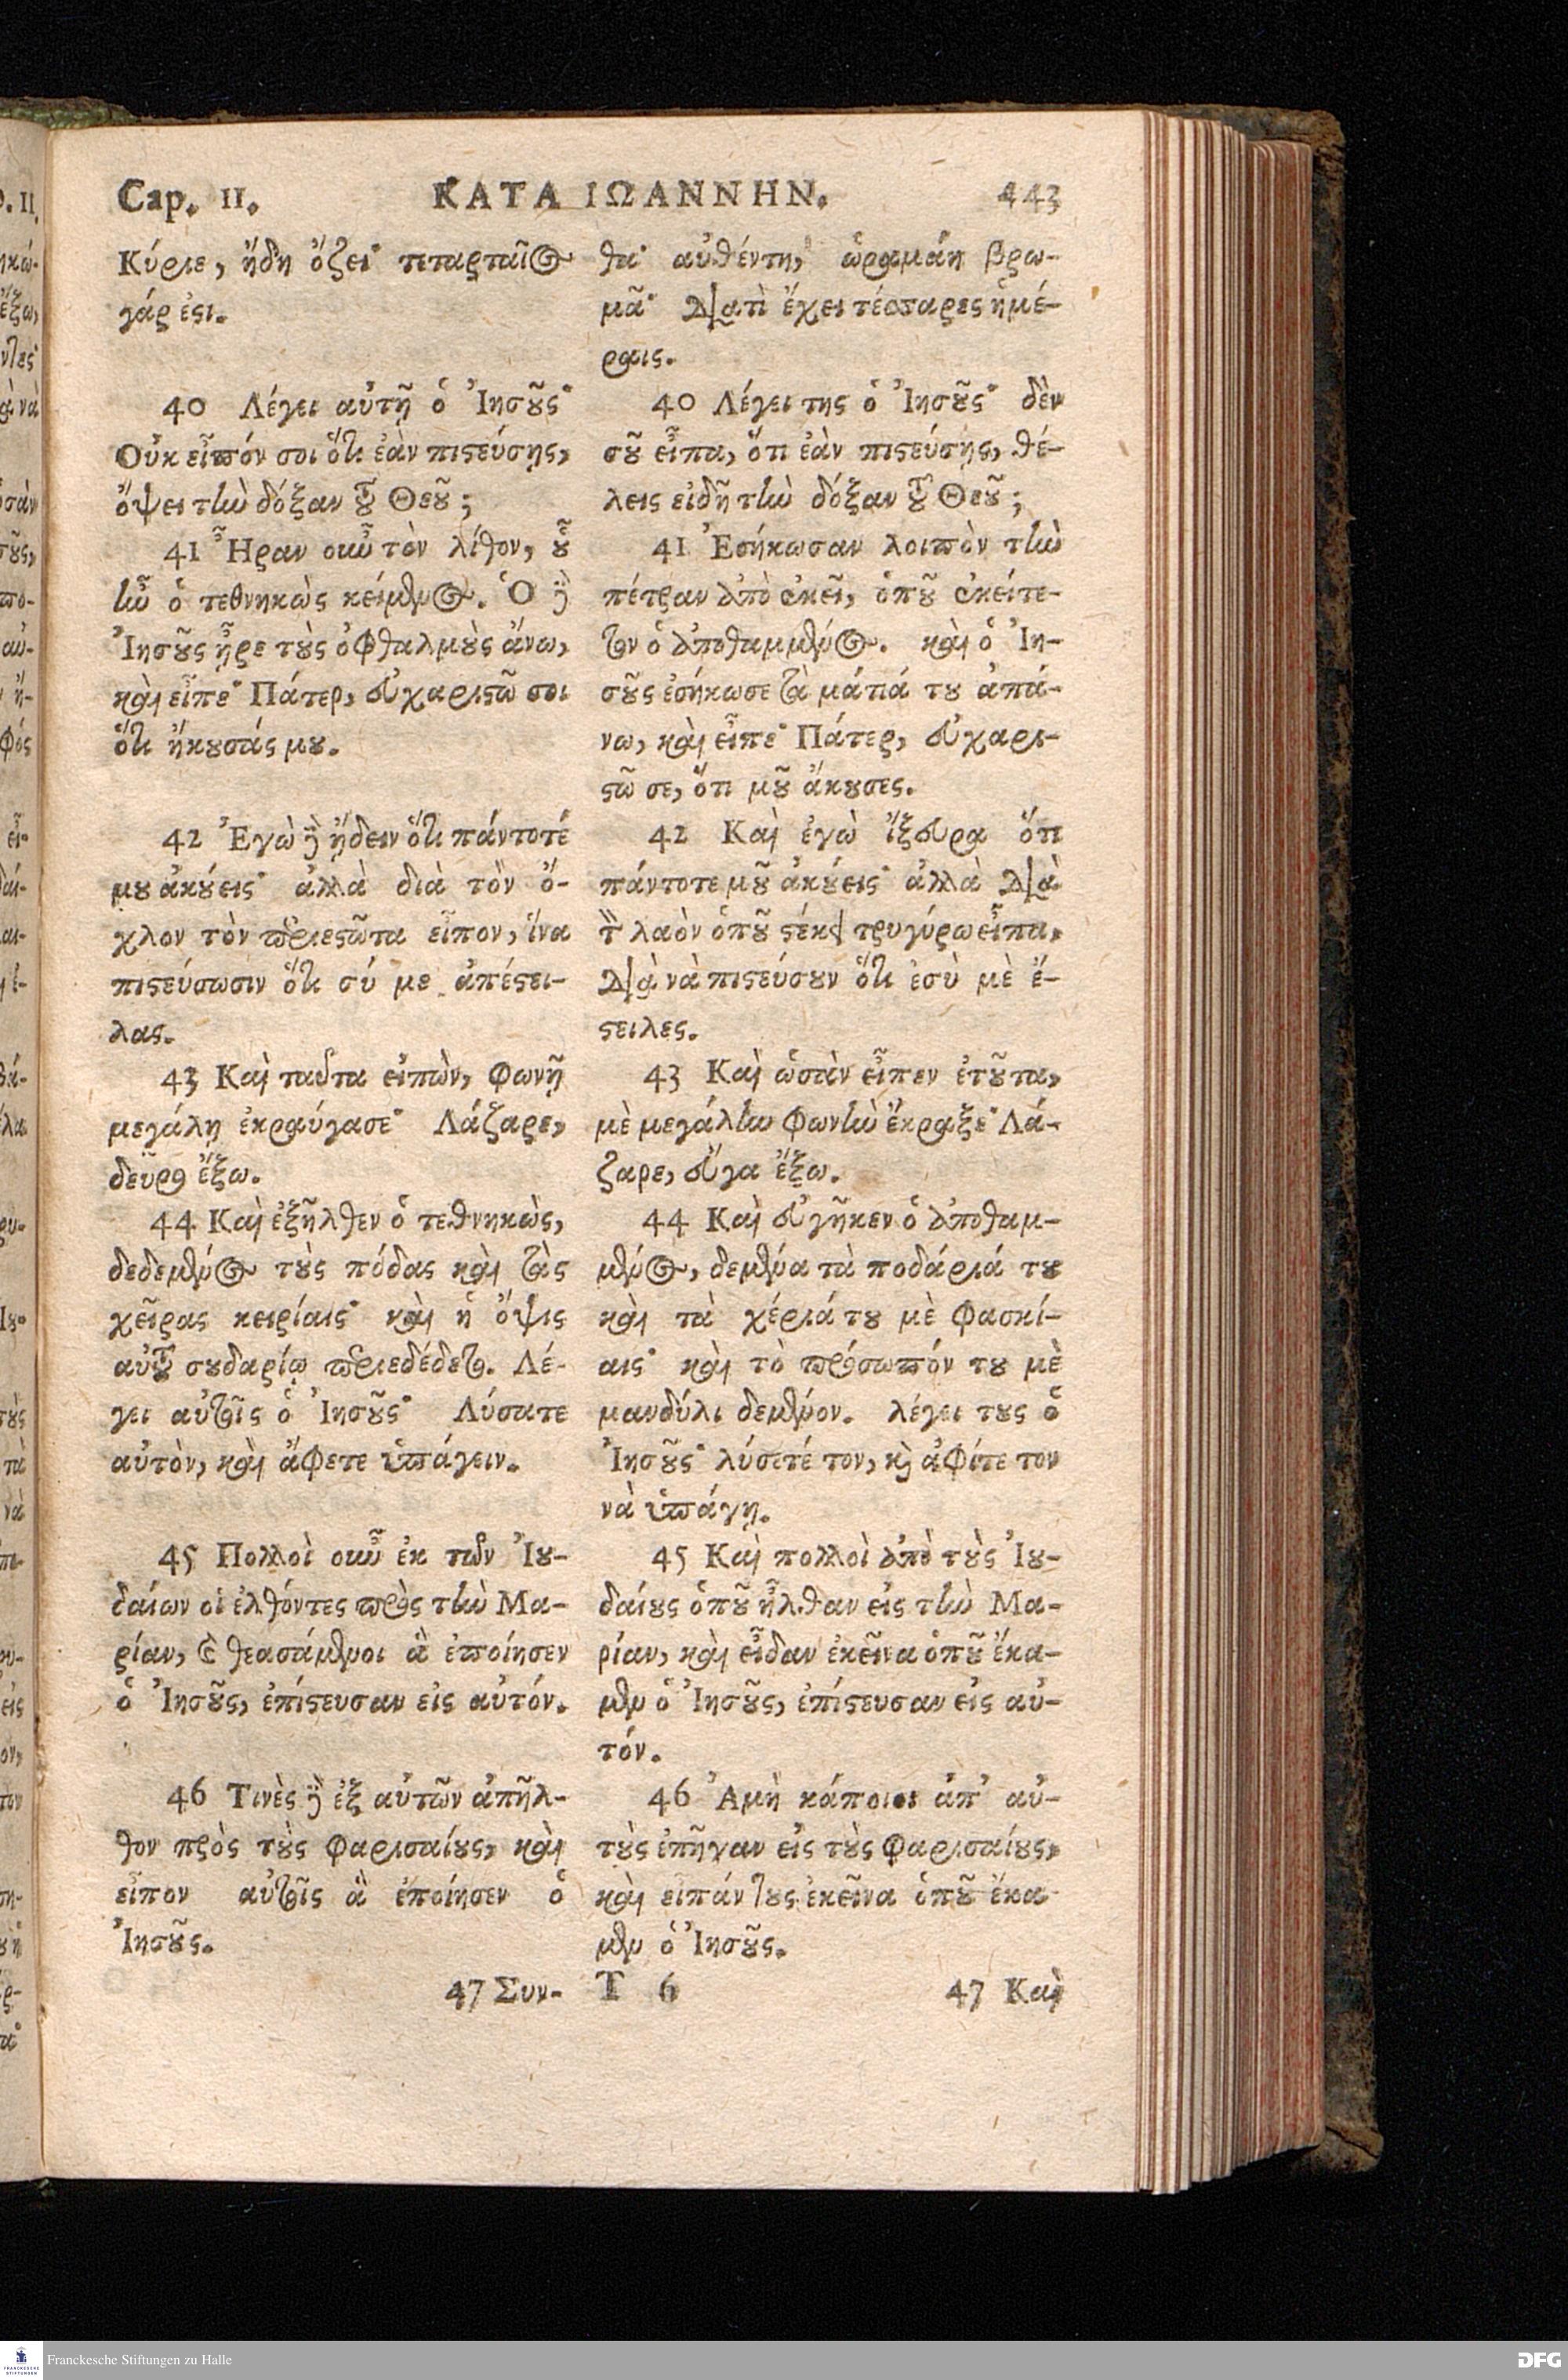 Cap. II. ΚΑΤΑ ΙΩΑΝΝΗΝ. 443
Κύριε, ἤδη ὄζει· τεταρταῖος
γάρ ἐςι.
40 Λέγει αὐτῇ ὁ Ἰησοῦς·
Οὐκ εἶπόν σοι ὅτι ἐὰν πιςεύσῃς,
ὄψει τὴν δόξαν τοῦ Θεοῦ;
41 Ἦραν οὖν τὸν λίθον, οὗ
ἦν ὁ τεθνηκὼς κείμενος. Ὁ δὲ
Ἰησοῦς ἦρε τοὺς ὀφθαλμοὺς ἄνω,
καὶ εἶπε· Πάτερ, εὐχαριςῶ σοι
ὅτι ἤκουσάς μου.
42 Ἐγὼ δὲ ᾔδειν ὅτι πάντοτέ
μου ἀκούεις· ἀλλὰ διὰ τὸν ὄ-
χλον τὸν περιεςῶτα εἶπον, ἵνα
πιςεύσωσιν ὅτι σύ με ἀπέςει-
λας.
43 Καὶ ταῦτα εἰπὼν, φωνῇ
μεγάλῃ ἐκραύγασε· Λάζαρε,
δεῦρο ἔξω.
44 Καὶ ἐξῆλθεν ὁ τεθνηκὼς,
δεδεμένος τοὺς πόδας καὶ τὰς
χεῖρας κειρίαις· καὶ ἡ ὄψις
αὐτοῦ σουδαρίῳ περιεδέδετο. Λέ-
γει αὐτοῖς ὁ Ἰησοῦς· Λύσατε
αὐτὸν, καὶ ἄφετε ὑπάγειν.
45 Πολλοὶ οὖν ἐκ τῶν Ἰου-
δαίων οἱ ἐλθόντες πρὸς τὴν Μα-
ρίαν, καὶ θεασάμενοι ἃ ἐποίησεν
ὁ Ἰησοῦς, ἐπίςευσαν εἰς αὐτόν.
46 Τινὲς δὲ ἐξ αὐτῶν ἀπῆλ-
θον πρὸς τοὺς Φαρισαίους, καὶ
εἶπον αὐτοῖς ἃ ἐποίησεν ὁ
Ἰησοῦς.
47 Συν-
θα· αὐθέντη, ὡραμάη βρω-
μᾶ· διατὶ ἔχει τέσσαρες ἡμέ-
ραις.
40 Λέγει της ὁ Ἰησοῦς· δὲν
σοῦ εἶπα, ὅτι ἐὰν πιςεύσῃς, θέ-
λεις εἰδῇ τὴν δόξαν τοῦ Θεοῦ;
41 Ἐσήκωσαν λοιπὸν τὴν
πέτραν ἀπὸ ἐκεῖ, ὁποῦ ἐκείτε-
τον ὁ ἀποθαμμένος. καὶ ὁ Ἰη-
σοῦς ἐσήκωσε τὰ μάτιά του ἀπά-
νω, καὶ εἶπε· Πάτερ, εὐχαρι-
ςῶ σε, ὅτι μοῦ ἄκουσες.
42 Καὶ ἐγὼ ἴξευρα ὅτι
πάντοτε μοῦ ἀκούεις· ἀλλὰ διὰ
τὸν λαὸν ὁποῦ ςέκει τρυγύρω εἶπα,
διὰ νὰ πιςεύσουν ὅτι ἐσὺ μὲ ἔ-
ςειλες.
43 Καὶ ὡσὰν εἶπεν ἐτοῦτα,
μὲ μεγάλην φωνὴν ἔκραξε· Λά-
ζαρε, εὔγα ἔξω.
44 Καὶ εὐγῆκεν ὁ ἀποθαμ-
μένος, δεμένα τὰ ποδάριά του
καὶ τὰ χέριά του μὲ φασκί-
αις· καὶ τὸ πρόσωπόν του μὲ
μανδύλι δεμένον. λέγει τους ὁ
Ἰησοῦς· λύσετέ τον, καὶ ἀφίτε τον
νὰ ὑπάγῃ.
45 Καὶ πολλοὶ ἀπὸ τοὺς Ἰου-
δαίους ὁποῦ ἦλθαν εἰς τὴν Μα-
ρίαν, καὶ εἶδαν ἐκεῖνα ὁποῦ ἔκα-
μεν ὁ Ἰησοῦς, ἐπίςευσαν εἰς αὐ-
τόν.
46 Ἀμὴ κάποιοι ἀπ' αὐ-
τοὺς ἐπῆγαν εἰς τοὺς Φαρισαίους,
καὶ εἶπάν τους ἐκεῖνα ὁποῦ ἔκα-
μεν ὁ Ἰησοῦς.
T 6 47 Καὶ
FRANCKESCHE STIFTUNGEN
Franckesche Stiftungen zu Halle
DFG